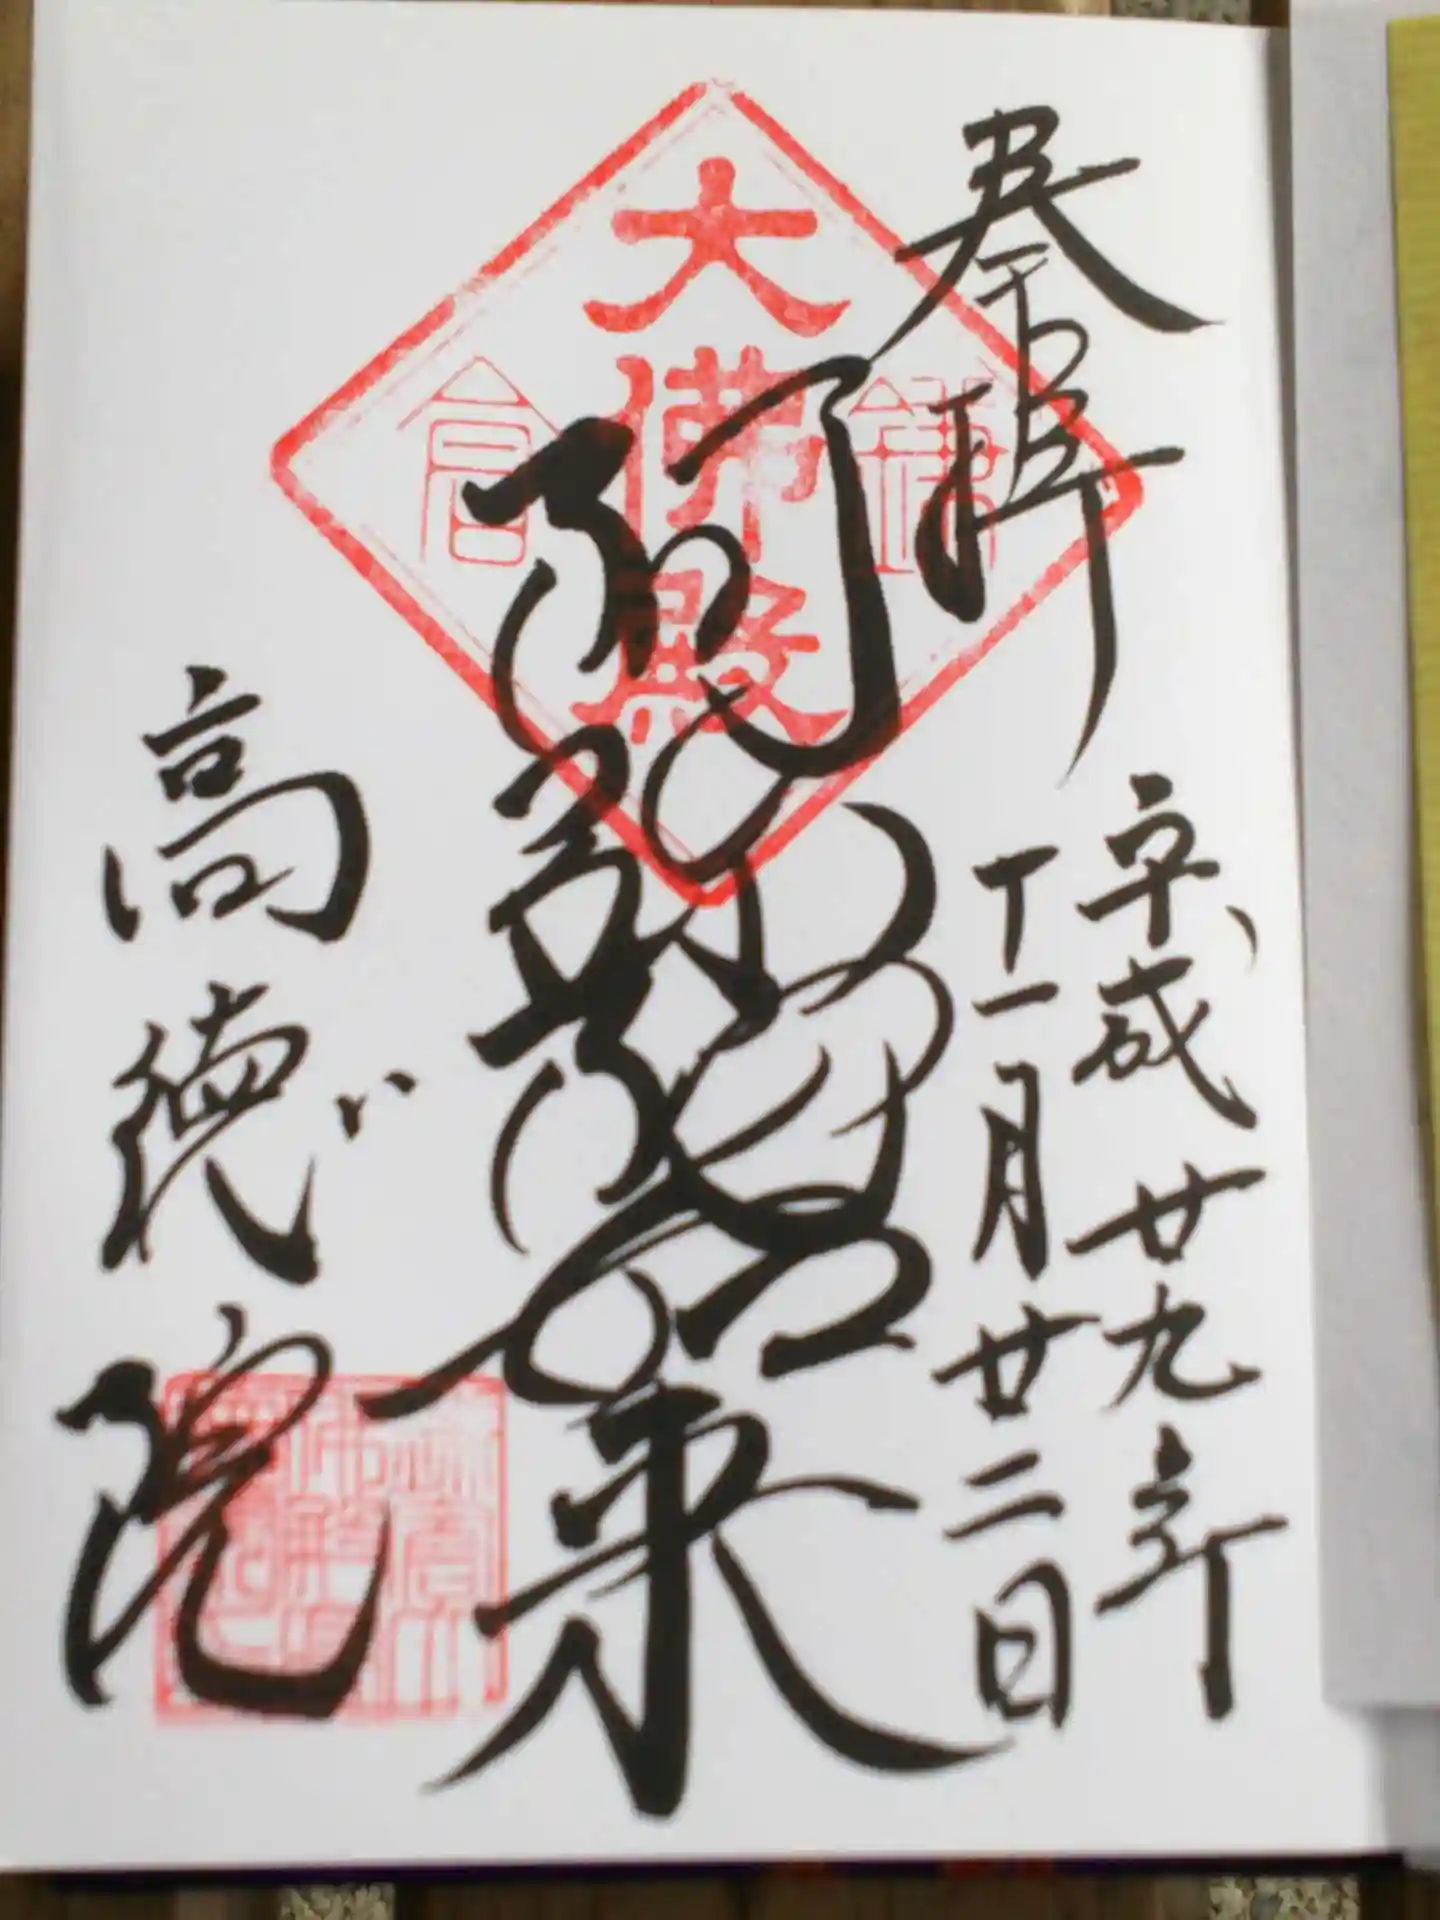 奉拝
平成廿九年
十一月廿二日
鎌倉
大佛殿
阿弥陀如来
高徳院